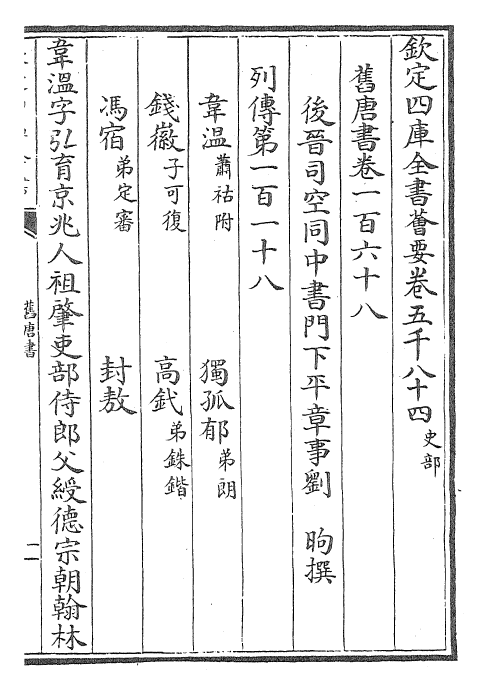 欽定四庫全書薈要卷五千八十四 史部
舊唐書卷一百六十八
後晉司空同中書門下平章事劉 昫撰
列傳第一百一十八
韋溫 蕭祐附 獨孤郁 弟朗
錢徽 子可復 高釴 弟銖鍇
馮宿 弟定審 封敖
韋溫字弘育京兆人祖肇吏部侍郎父綬德宗朝翰林
舊唐書
一